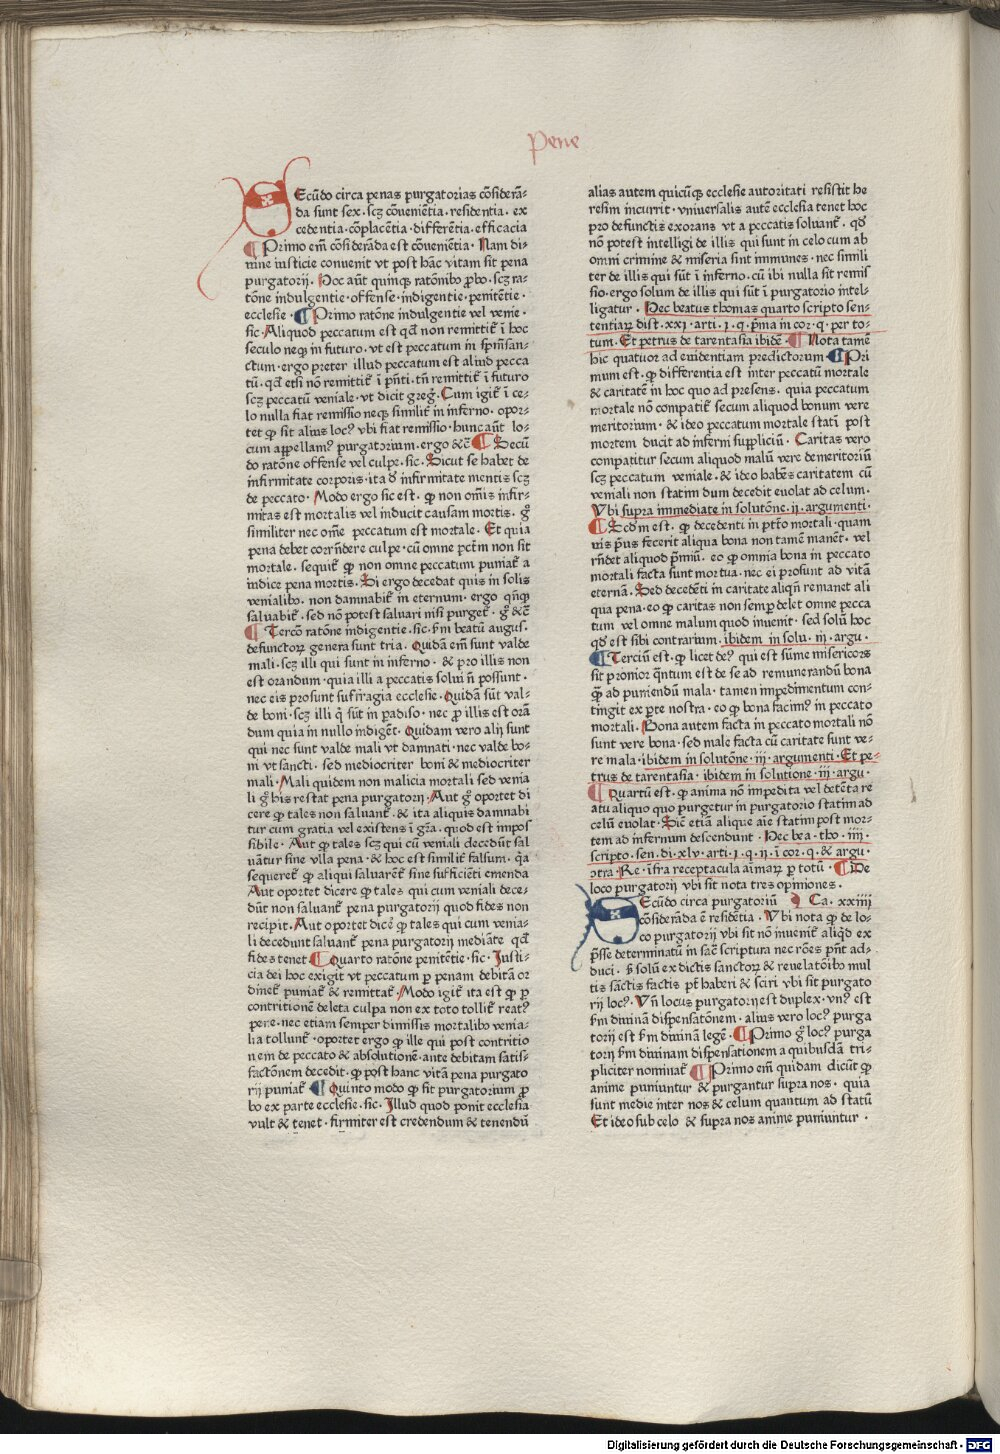 Pene
SEcũdo circa penas purgatorias cõsiderã-
da sunt sex. scꝫ cõueniẽtia. residentia. ex
cedentia. cõplacẽtia. differẽtia. efficacia
¶ Primo em̃ cõsiderãda est cõueniẽtia. Nam di-
uine iusticie conuenit vt post hãc vitam sit pena
purgatorij. Hoc aũt quinqꝫ ratõnibꝰ ꝓbo. scꝫ ra-
tõne indulgentie. offense. indigentie. penitẽtie.
ecclesie. ¶ Primo ratõne indulgentie vel venie.
sic. Aliquod peccatum est qđ non remittit᷑ ĩ hoc
seculo neqꝫ in futuro. vt est peccatum in spm̃san-
ctum. ergo preter illud peccatum est aliud pecca
tũ. qđ etsi nõ remittit᷑ ĩ pñti. tñ remittit᷑ ĩ futuro
scꝫ peccatũ veniale. vt dicit greg̃. Cum igit᷑ ĩ ce-
lo nulla fiat remissio neqꝫ similit᷑ in inferno. opor-
tet ꝙ sit alius locꝰ vbi fiat remissio. hunc aũt lo-
cum appellamꝰ purgatorium. ergo &c̃ ¶ Secũ
do ratõne offense vel culpe. sic. Sicut se habet de
infirmitate corporis. ita đ infirmitate mentis scꝫ
de peccato. Modo ergo sic est. ꝙ non om̃is infir-
mitas est mortalis vel inducit causam mortis. g̊
similiter nec om̃e peccatum est mortale. Et quia
pena debet corrñdere culpe. cũ omne pctm̃ non sit
mortale. sequit᷑ ꝙ non omne peccatum puniat᷑ a
iudice pena mortis. Si ergo decedat quis in solis
venialibꝰ. non damnabit᷑ in eternum. ergo qñqꝫ
saluabit᷑. sed nõ potest saluari nisi purget᷑. g̊ &c̃
¶ Tercõ ratõne indigentie. sic. ẜm beatũ augus.
defunctoꝝ genera sunt tria. Quidã em̃ sunt valde
mali. scꝫ illi qui sunt in inferno. & pro illis non
est orandum. quia illi a peccatis solui ñ possunt.
nec eis prosunt suffragia ecclesie. Quidã sũt val-
de boni. scꝫ illi q̃ sũt in ꝑadiso. nec ꝓ illis est orã
dum quia in nullo indigẽt. Quidam vero alij sunt
qui nec sunt valde mali vt damnati. nec valde bo-
ni vt sancti. sed mediocriter boni & mediocriter
mali. Mali quidem non malicia mortali sed venia
li g̊ his restat pena purgatorij. Aut g̊ oportet di
cere ꝙ tales non saluant᷑. & ita aliquis damnabi
tur cum gratia vel existens ĩ gr̃a. quod est impos
sibile. Aut ꝙ tales scꝫ qui cũ veniali decedũt sal
uãtur sine vlla pena. & hoc est similit᷑ falsum. q̃a
sequeret᷑ ꝙ aliqui saluarẽt᷑ sine sufficiẽti emenda
Aut oportet dicere ꝙ tales qui cum veniali dece-
dũt non saluant᷑ pena purgatorij quod fides non
recipit. Aut oportet dicẽ ꝙ tales qui cum venia-
li decedunt saluant᷑ pena purgatorij mediãte qđ
fides tenet ¶ Quarto ratõne penitẽtie. sic. Iusti-
cia dei hoc exigit vt peccatum ꝑ penam debitã or
dinet᷑ puniat᷑ & remittat᷑. Modo igit᷑ ita est ꝙ ꝑ
contritionẽ deleta culpa non ex toto tollit᷑ reatꝰ
pene. nec etiam semper dimissis mortalibꝰ venia-
lia tollunt᷑. oportet ergo ꝙ ille qui post contritio
nem de peccato & absolutionẽ. ante debitam satis-
factõnem decedit. ꝙ post hanc vitã pena purgato
rij puniat᷑ ¶ Quinto modo ꝙ sit purgatorium ꝓ
bo ex parte ecclesie. sic. Illud quod ponit ecclesia
vult & tenet. firmiter est credendum & tenendũ
alias autem quicũqꝫ ecclesie autoritati resistit he
resim incurrit. vniuersalis autẽ ecclesia tenet hoc
pro defunctis exorans vt a peccatis soluant᷑. qđ
nõ potest intelligi de illis qui sunt in celo cum ab
omni crimine & miseria sint immunes. nec simili
ter de illis qui sũt ĩ inferno. cũ ibi nulla sit remis
sio. ergo solum de illis qui sũt ĩ purgatorio intel-
ligatur. Hec beatus thomas quarto scripto sen-
tentiaꝝ dist. xxi. arti. i. q. p̃ma in cor. q. per to-
tum. Et petrus de tarentasia ibidẽ. ¶ Nota tamẽ
hic quatuor ad euidentiam predictorum ¶ Pri
mum est. ꝙ differentia est inter peccatũ mortale
& caritatẽ in hoc quo ad presens. quia peccatum
mortale nõ compatit᷑ secum aliquod bonum vere
meritorium. & ideo peccatum mortale stati᷑ post
mortem ducit ad inferni suppliciũ. Caritas vero
compatitur secum aliquod malũ vere demeritoriũ
scꝫ peccatum veniale. & ideo habẽs caritatem cũ
veniali non statim dum decedit euolat ad celum.
Vbi supra immediate in solutõne. ii. argumenti.
¶ Scđm est. ꝙ decedenti in pctõ mortali. quam
uis p̃us fecerit aliqua bona non tamẽ manẽt. vel
rñdet aliquod p̃miũ. eo ꝙ omnia bona in peccato
mortali facta sunt mortua. nec ei prosunt ad vitã
eternã. Sed decedẽti in caritate aliqñ remanet ali
qua pena. eo ꝙ caritas non semꝑ delet omne pecca
tum vel omne malum quod inuenit. sed solũ hoc
qđ est sibi contrarium. ibidem in solu. iii. argu.
¶ Terciũ est. ꝙ licet deꝰ qui est sũme misericors
sit pronior q̃ntum est de se ad remunerandũ bona
q̃ ad puniendũ mala. tamen impedimentum con-
tingit ex ꝑte nostra. eo ꝙ bona facimꝰ in peccato
mortali. Bona autem facta in peccato mortali nõ
sunt vere bona. sed male facta cũ caritate sunt ve-
re mala. ibidem in solutõne. iii. argumenti. Et pe-
trus de tarentasia. ibidem in solutione. iii. argu.
¶ Quartũ est. ꝙ anima nõ impedita vel detẽta re
atu aliquo quo purgetur in purgatorio statim ad
celũ euolat. Sic̃ etiã alique aĩe statim post mor-
tem ad infernum descendunt. Hec bea. tho. iiii.
scripto. sen. di. xlv. arti. i. q. ii. ĩ cor. q. & argu.
otra. Re. ĩfra receptacula aĩmaꝝ ꝑ totũ. ¶ De
loco purgatorij vbi sit nota tres opiniones.
SEcũdo circa purgatoriũ ¶ Ca. xxiiii
cõsiderãda ẽ residẽtia. Vbi nota ꝙ de lo-
co purgatorij vbi sit nõ inuenit᷑ aliq̃d ex
p̃sse determinatũ in sac̃ scriptura nec rões pñt ad-
duci. ẜ solũ ex dictis sanctoꝝ & reuelatõibꝰ mul
tis sãctis factis pt̃ haberi & sciri vbi sit purgato
rij locꝰ. Vñ locus purgatorij est duplex. vnꝰ est
ẜm diuinã dispensatõnem. alius vero locꝰ purga
torij est ẜm diuinã legẽ. ¶ Primo g̊ locꝰ purga
torij ẜm diuinam dispensationem a quibusdã tri-
pliciter nominat᷑ ¶ Primo em̃ quidam dicũt ꝙ
anime puniuntur & purgantur supra nos. quia
sunt medie inter nos & celum quantum ad statũ
Et ideo sub celo & supra nos anime puniuntur.
Digitalisierung gefördert durch die Deutsche Forschungsgemeinschaft - DFG